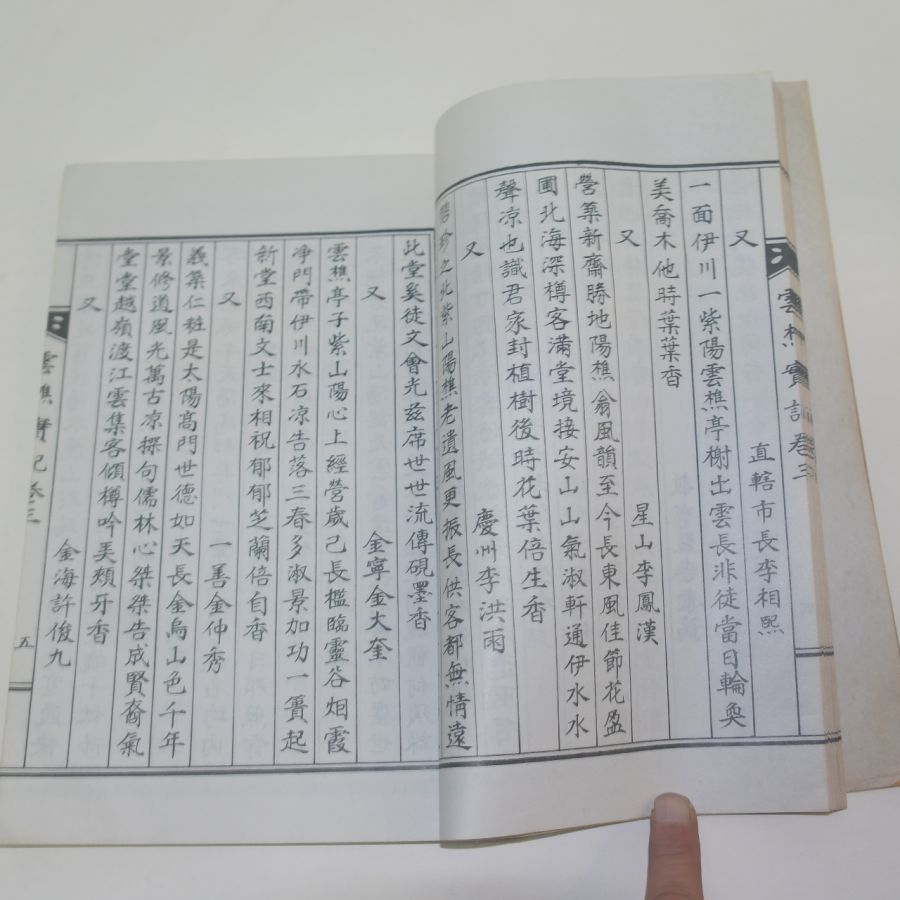 雲樵實記卷三
又
直轄市長李相熙
一面伊川一紫陽雲樵亭榭出雲長非徒當日輪奐
美喬木他時葉葉香
又
星山李鳳漢
營築新齋勝地陽樵翁風韻至今長東風佳節花盈
圃北海深樽客滿堂境接安山山氣淑軒通伊水水
聲凉也識君家封植樹後時花葉倍生香
又
慶州李洪雨
珍之北紫山陽樵老遺風更振長供客都無情遠
此堂奚徒文會光玆席世世流傳硯墨香
又
金寧金大奎
雲樵亭子紫山陽心上經營歲已長檻臨靈谷烟霞
净門帶伊川水石凉告落三春多淑景加功一簣起
新堂西南文士來相祝郁郁芝蘭倍自香
又
一善金仲秀
義築仁粧是太陽高門世德如天長金烏山色千年
景修道風光萬古凉探句儒林心桀桀告成賢裔氣
堂堂越嶺渡江雲集客傾樽吟美頰牙香
又
金海許俊九
雲樵實記卷三
五